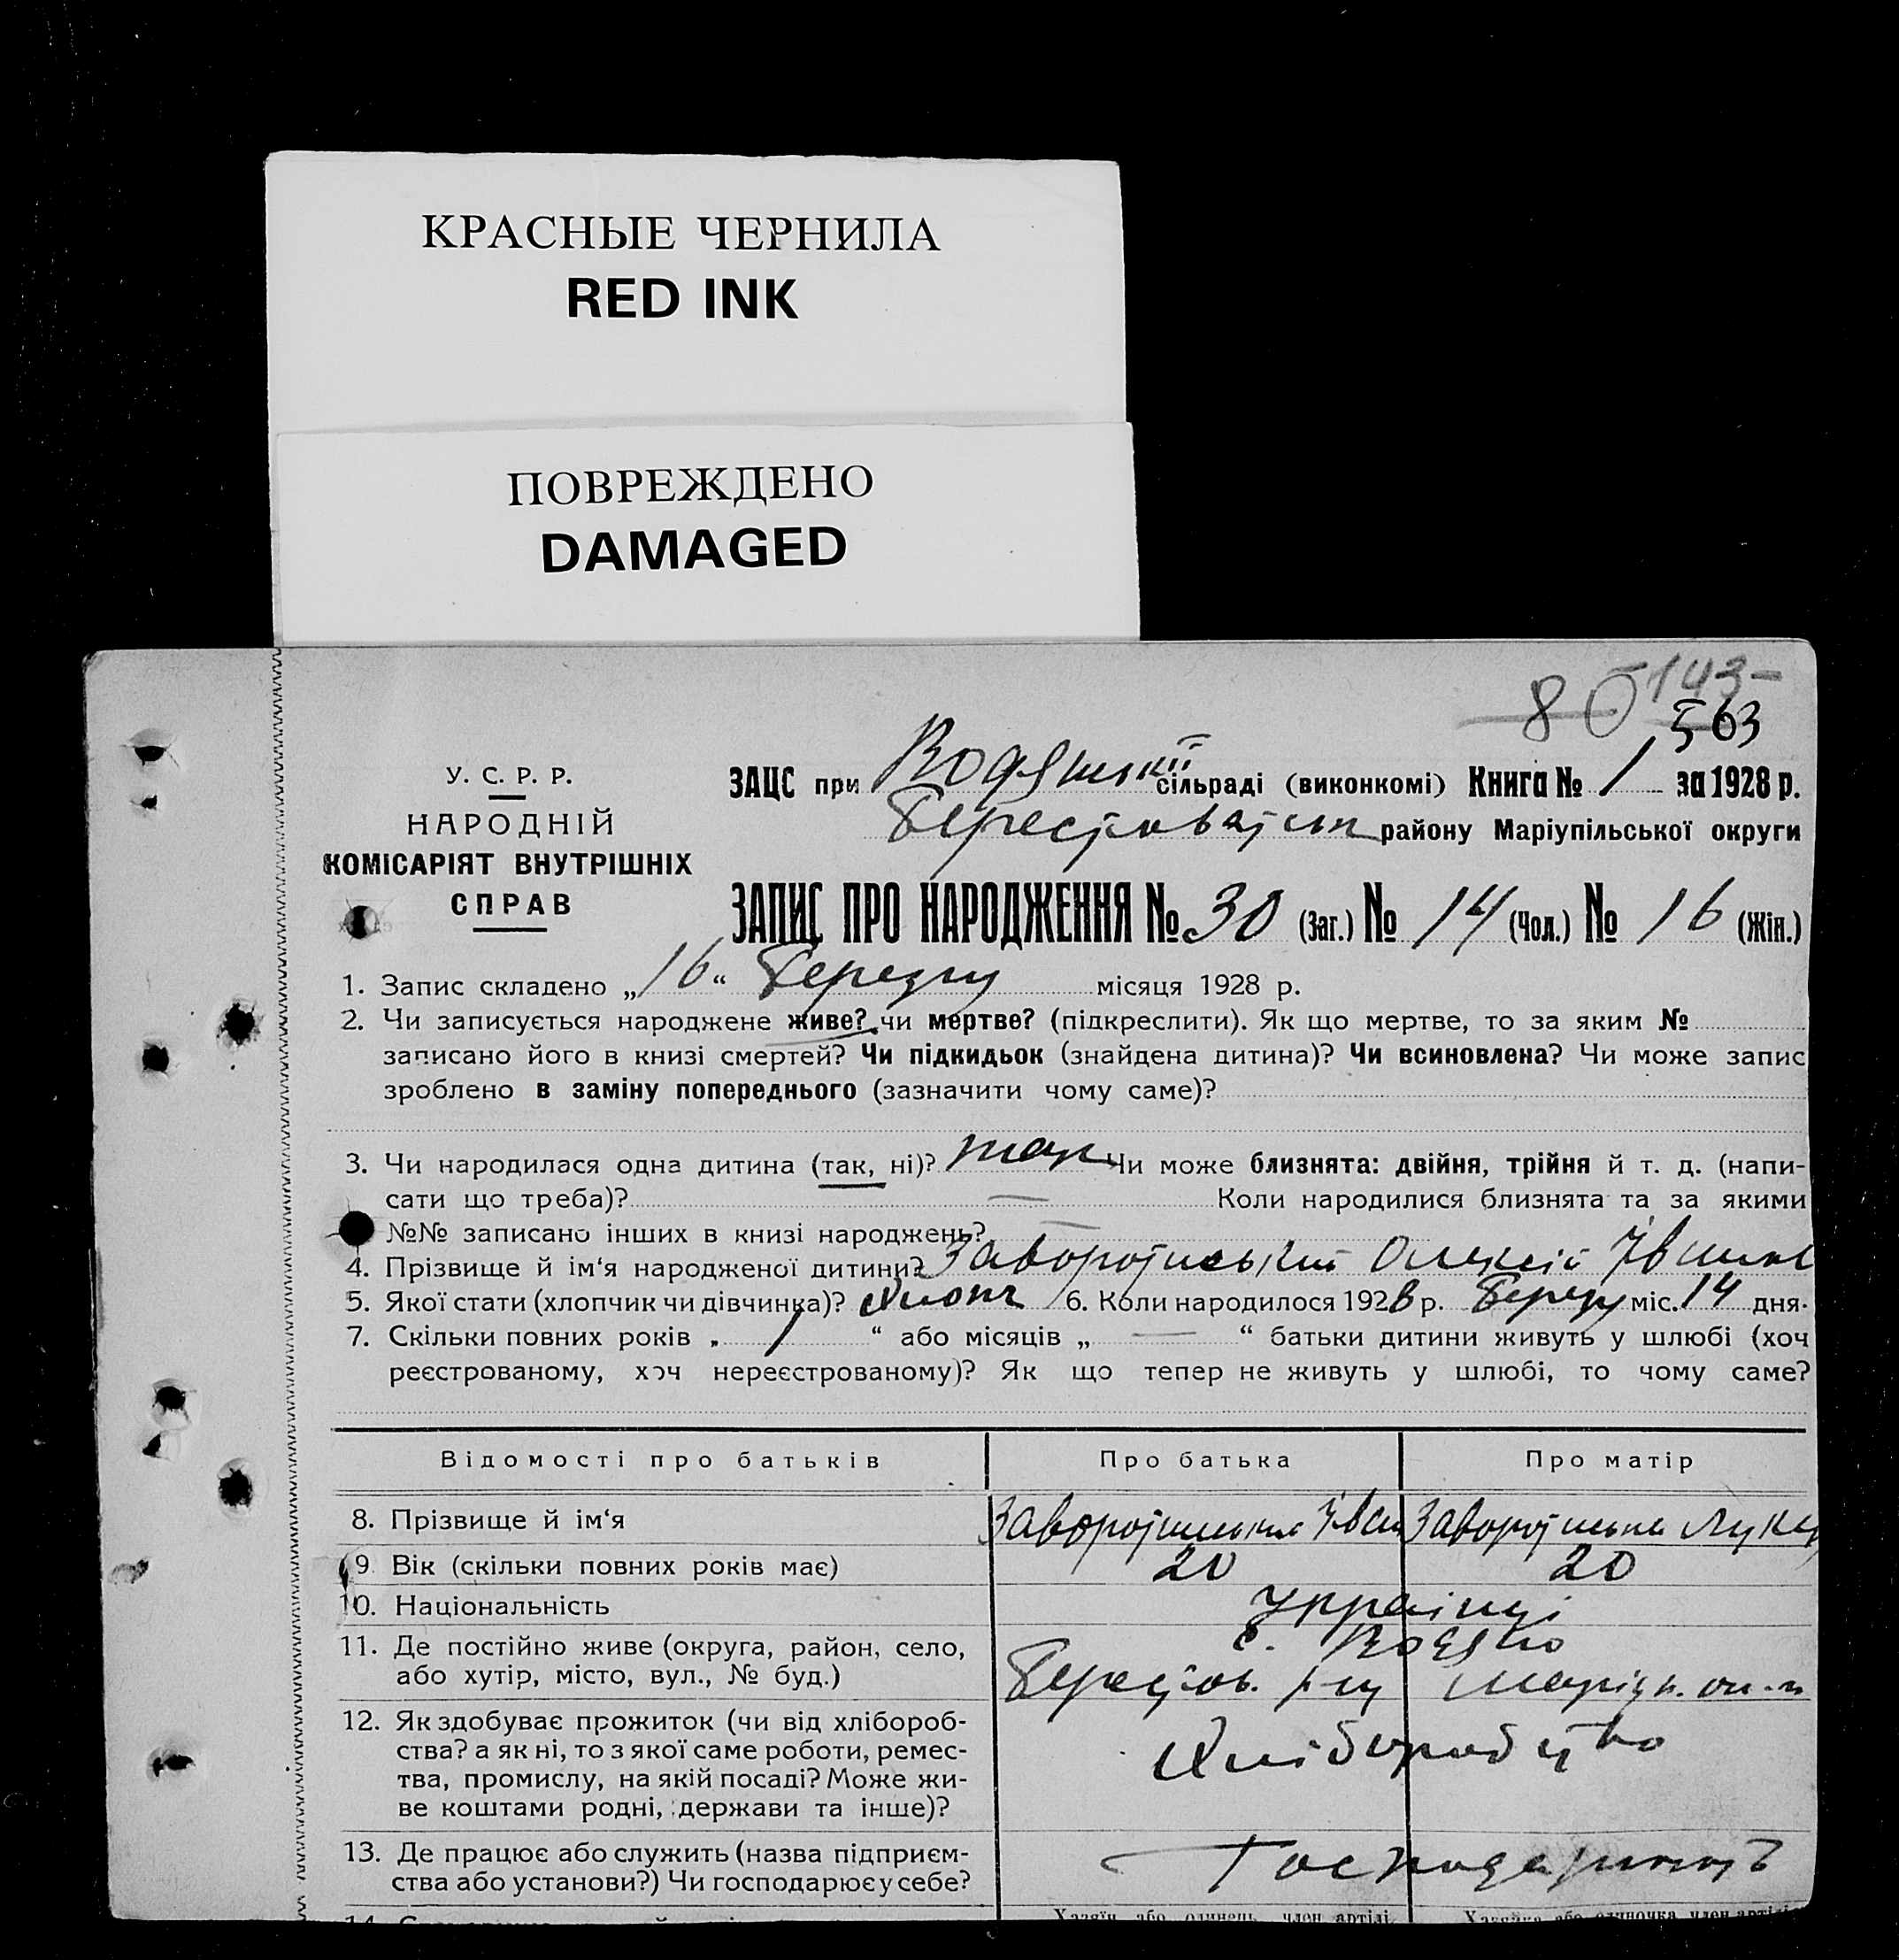 КРАСНЫЕ ЧЕРНИЛА
RED INK
ПОВРЕЖДЕНО
DAMAGED
80 143-
563
У. С. Р. Р.
НАРОДНІЙ
КОМІСАРІЯТ ВНУТРІШНІХ
СПРАВ
ЗАЦС при Водянській сільраді (виконкомі) Книга № 1 за 1928 р.
району Маріупільської округи
ЗАПИС ПРО НАРОДЖЕННЯ № 30 (Заг.) № 14 (Чол.) № 16 (Жін.)
1. Запис складено „16“ Березня місяця 1928 р.
2. Чи записується народжене живе? чи мертве? (підкреслити). Як що мертве, то за яким №
записано його в книзі смертей? Чи підкидьок (знайдена дитина)? Чи всиновлена? Чи може запис
зроблено в заміну попереднього (зазначити чому саме)?
3. Чи народилася одна дитина (так, ні)? так Чи може близнята: двійня, трійня й т. д. (напи-
сати що треба)? — Коли народилися близнята та за якими
№№ записано інших в книзі народжень?
4. Прізвище й ім‘я народженої дитини? Заворотинський Олексій
5. Якої стати (хлопчик чи дівчинка)? Хлопч 6. Коли народилося 1928 р. Березня міс. 14 дня.
7. Скільки повних років „ 1 “ або місяців „ — “ батьки дитини живуть у шлюбі (хоч
реєстрованому, хоч нереєстрованому)? Як що тепер не живуть у шлюбі, то чому саме?
Відомості про батьків Про батька Про матір
8. Прізвище й ім‘я
9. Вік (скільки повних років має) 20 20
10. Національність Українці
11. Де постійно живе (округа, район, село, с. Водяно
або хутір, місто, вул., № буд.)
12. Як здобуває прожиток (чи від хлібороб-
ства? а як ні, то з якої саме роботи, ремес- Хліборобство
тва, промислу, на якій посаді? Може жи-
ве коштами родні, держави та інше)?
13. Де працює або служить (назва підприєм-
ства або установи?) Чи господарює у себе?
Хазяїн або одинець, член артілі, Хазяйка або одиночка член артілі